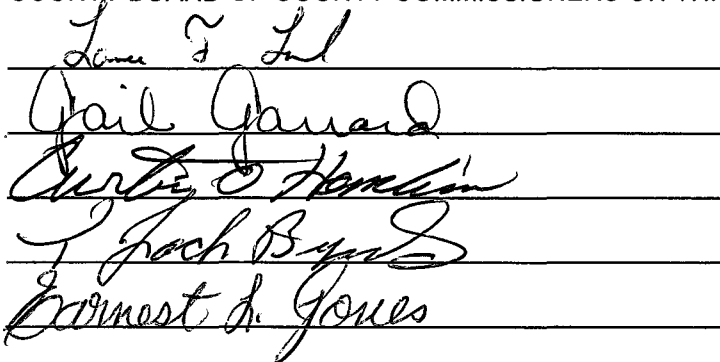 COUNTY BOARD OF COUNTY COMMISSIONERS ON THI
F
Gail Garrard
Curtis O Hamlin
Zach
Earnest L. Jones